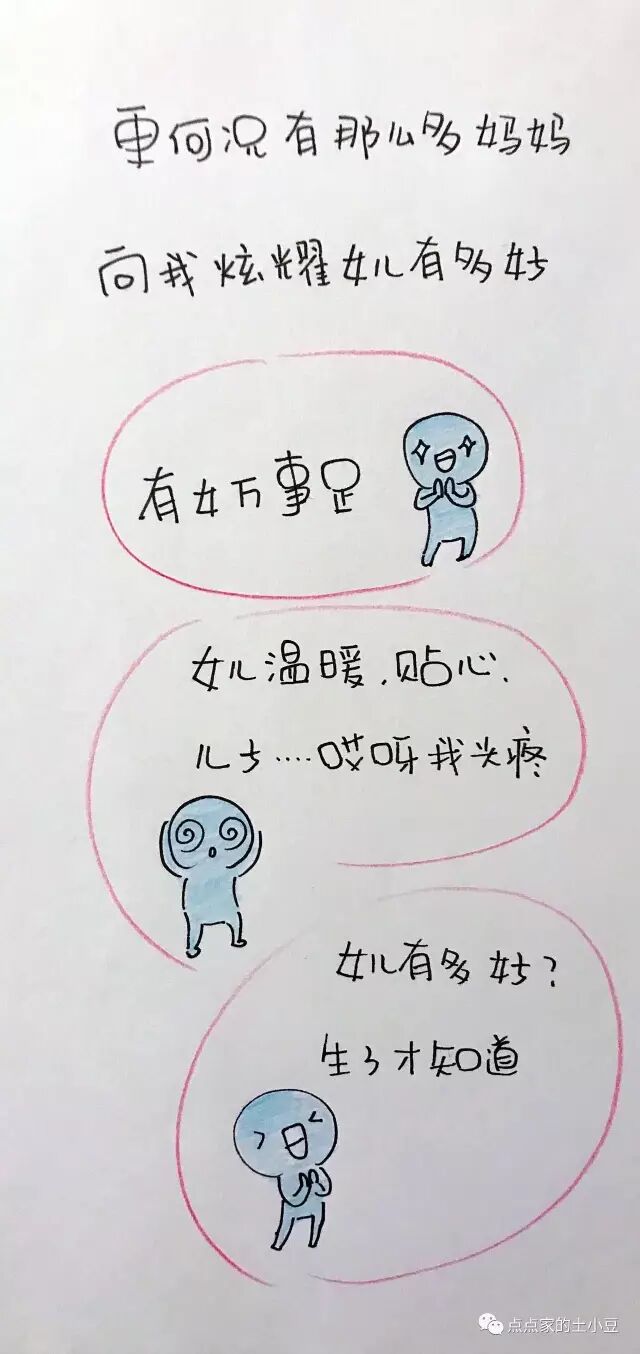 更何况有那么多妈妈
向我炫耀女儿有多好
有女万事足
女儿温暖.贴心.
儿子....哎呀我头疼
女儿有多好?
生了才知道
点点家的土小豆